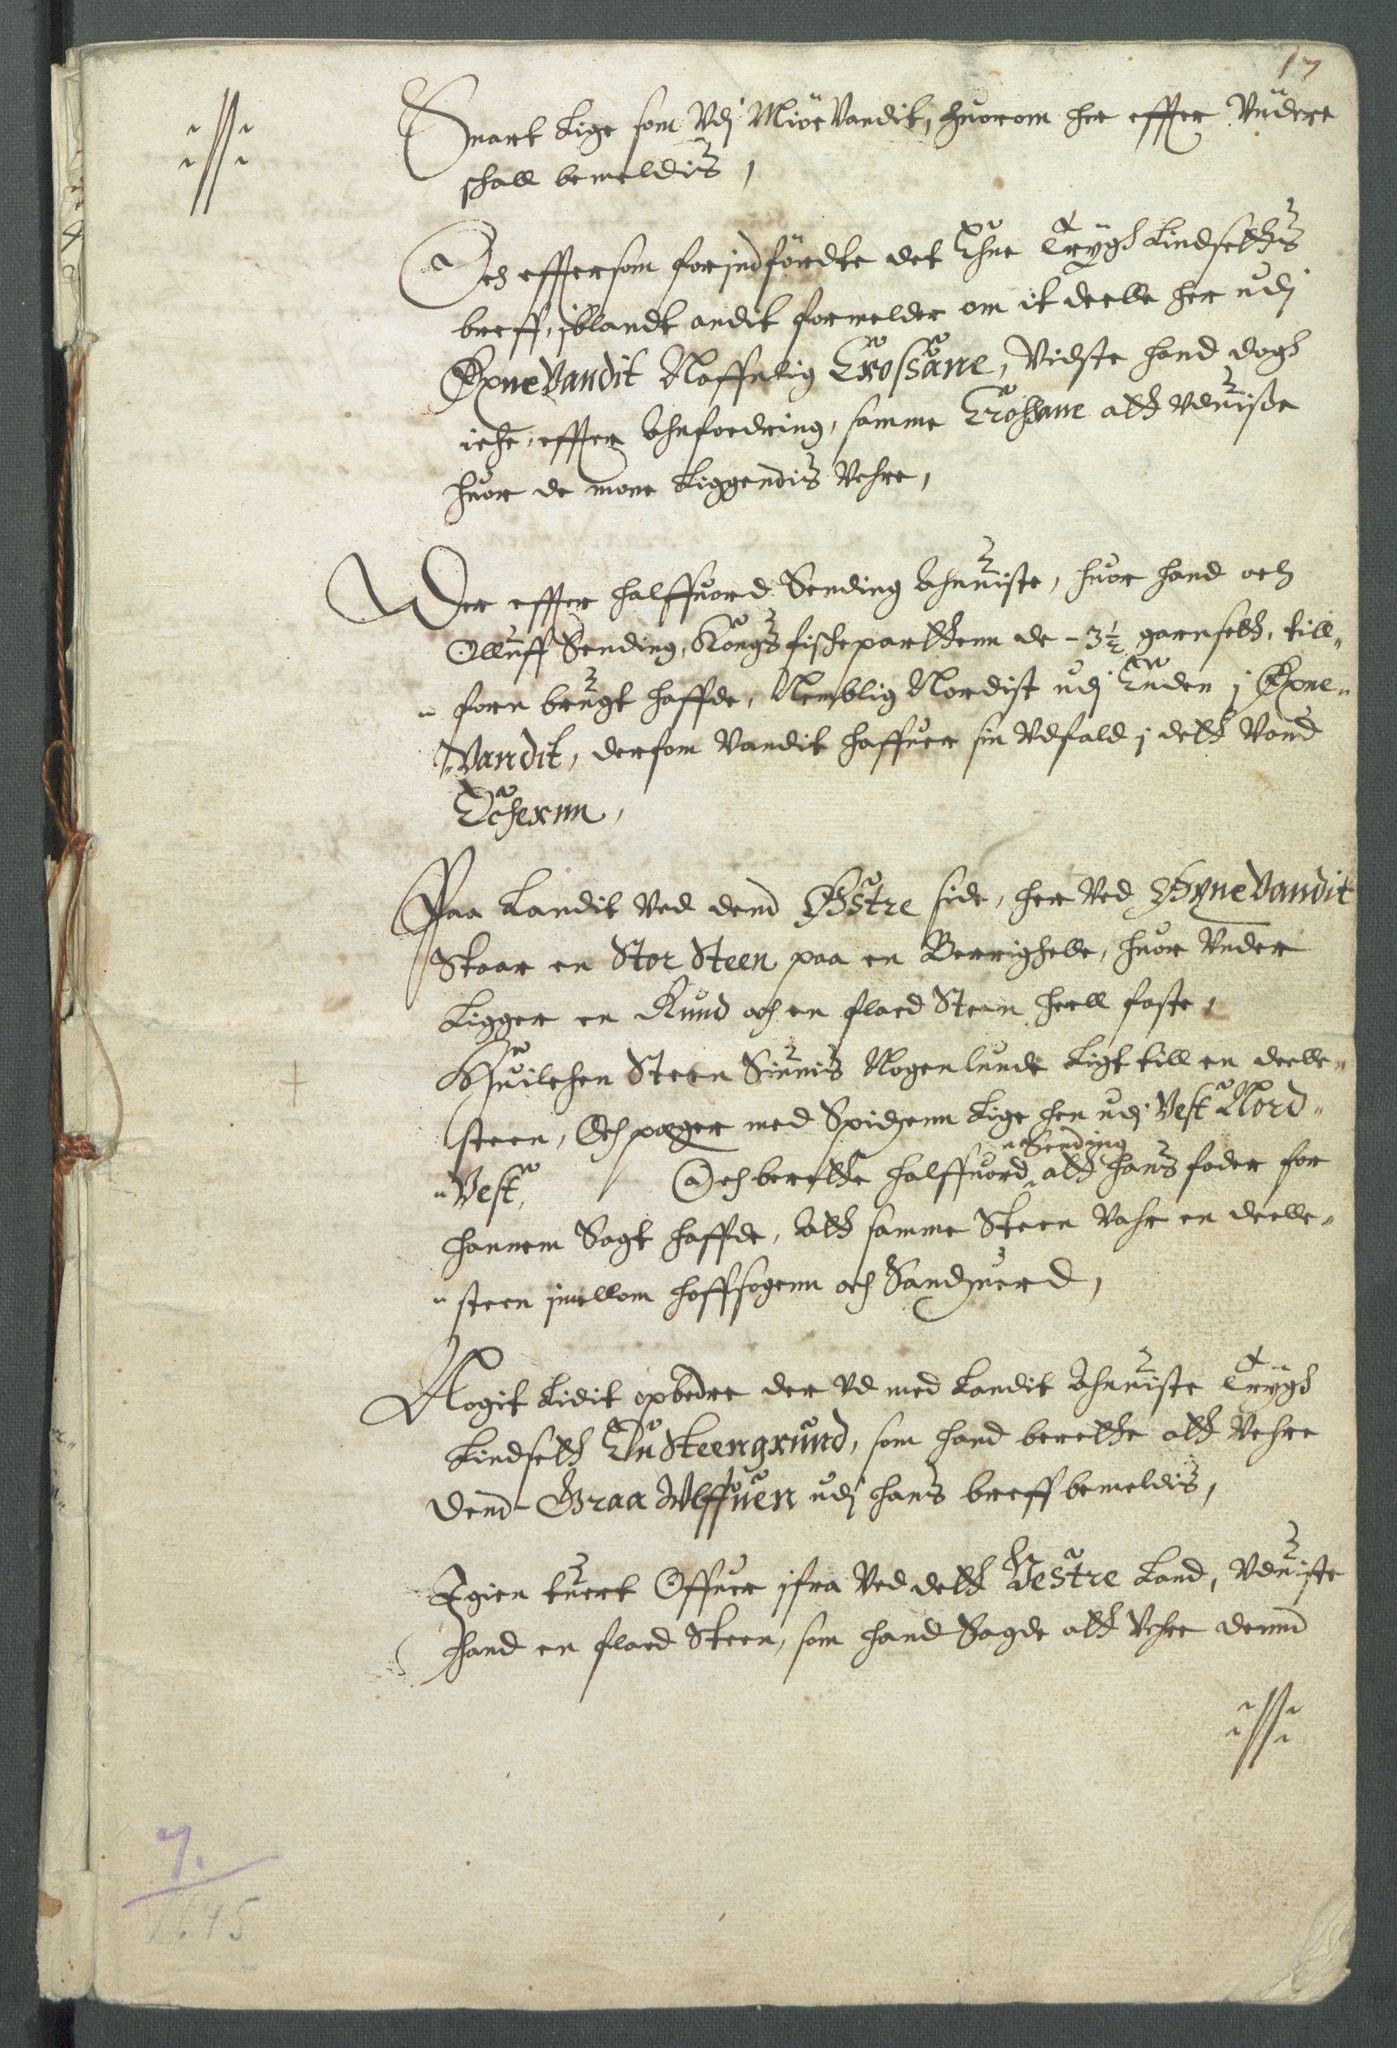 17
Snart Lige som Vdj Miöevandit, huorom her effter Vndere
schall bemeldis,
Och efftersom forjndfördte det Ehne Trÿgh Lindsetthis
breff, jblandt andit formelder om it deelle her udj
Øxnevandit Naffnlig Trossarre, Vidste hand dogh
iche, effter Ahnfordring, samme Trossane att Vduiste
huor de mone Liggendis Vehre,
Der effter Halffuord Sending Ahnuiste, huor hand och
Olluff Sending, Kongs fischeparthenn de - 3½ garnseth, till„
„ forn brugt haffde, Nemblig Nordist udj Enden j Øxne„
„Vandit, dersom Vandit haffuer sin Vdfald j deth Vand
Echerum,
Paa Landit Ved dend Østre side, her Ved Øxnevandit
Staar en Stor Steen paa en Berrighelle, huor Vnder
Ligger en Rund och en flaed Steen heell faste,
Huilchen Steen Siunis Nogenlunde Ligt till en deelle„
steen, Och peger med Spidzenn Lige hen udj Vest Nord„
„Vest, Och berette Halffuord „Sending att hans fader for
hannem Sagt haffde, Att samme Steen Vahr en deelle„
„ steen jmellom hoffsogenn och Sandzuerd,
Nogit Lidit opbedre der Vd med Landit Ahnuiste Trÿgh
Lindseth En Steengrund, som hand berette att Vehre
Dend Graa Wlffuen udj hans breff bemeldis,
Igien tuert Offuer jfra Ved deth Vestre Land, Vduiste
hand en flaed Steen, som hand Sagde att Vehre dennd
7.
1645